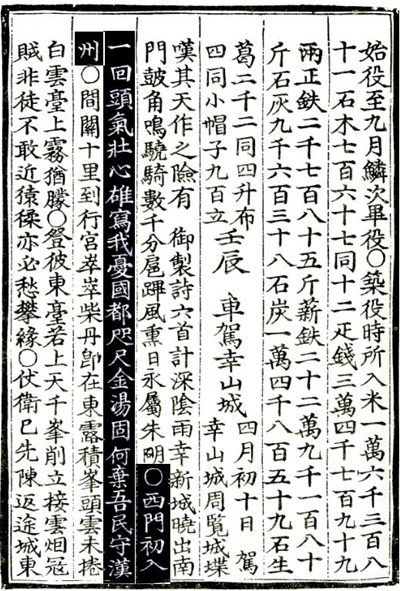 始役至九月鱗次畢役○築役時所入米一萬六千三百八
十一石木七百六十七同十二疋錢三萬四千七百九十九
兩正鉄二千七百八十五斤薪鉄二十二萬九千一百八十
斤石灰九千六百三十八石炭一萬四千八百五十九石生
葛二千二同四升布
四同小帽子九百立
壬辰 車駕幸山城
四月初十日 駕
幸山城周覧城堞
嘆其天作之險有 御製詩六首計深陰雨幸新城曉出南
門鼓角鳴驍騎數千分扈蹕風熏日永屬朱明○西門初入
一回頭氣壯心雄寫我憂國都咫尺金湯固何棄吾民守漢
州○間關十里到行宮崒崒柴丹卽在東露積峯頭雲未捲
白雲臺上霧猶朦○登彼東臺若上天千峯削立接雲烟冠
賊非徒不敢近猿猱亦必愁攀緣○仗衛已先陳返途城東